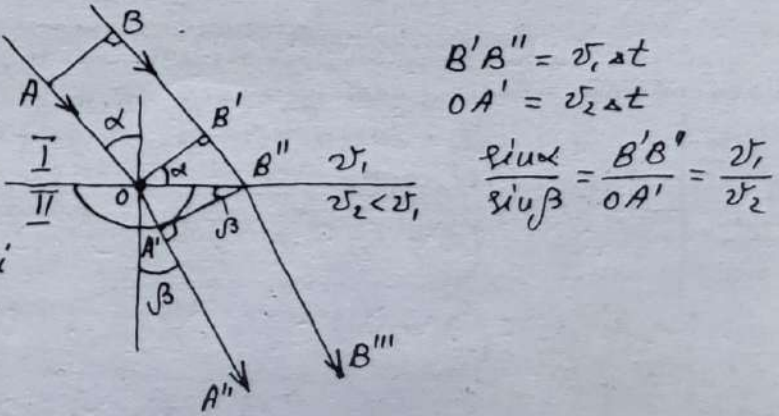 B
A
α
B'
I
α
B''
v₁
II
O
v₂ < v₁
A'
β
β
A''
B'''
B'B'' = v₁Δt
OA' = v₂Δt
sinα / sinβ = B'B'' / OA' = v₁ / v₂